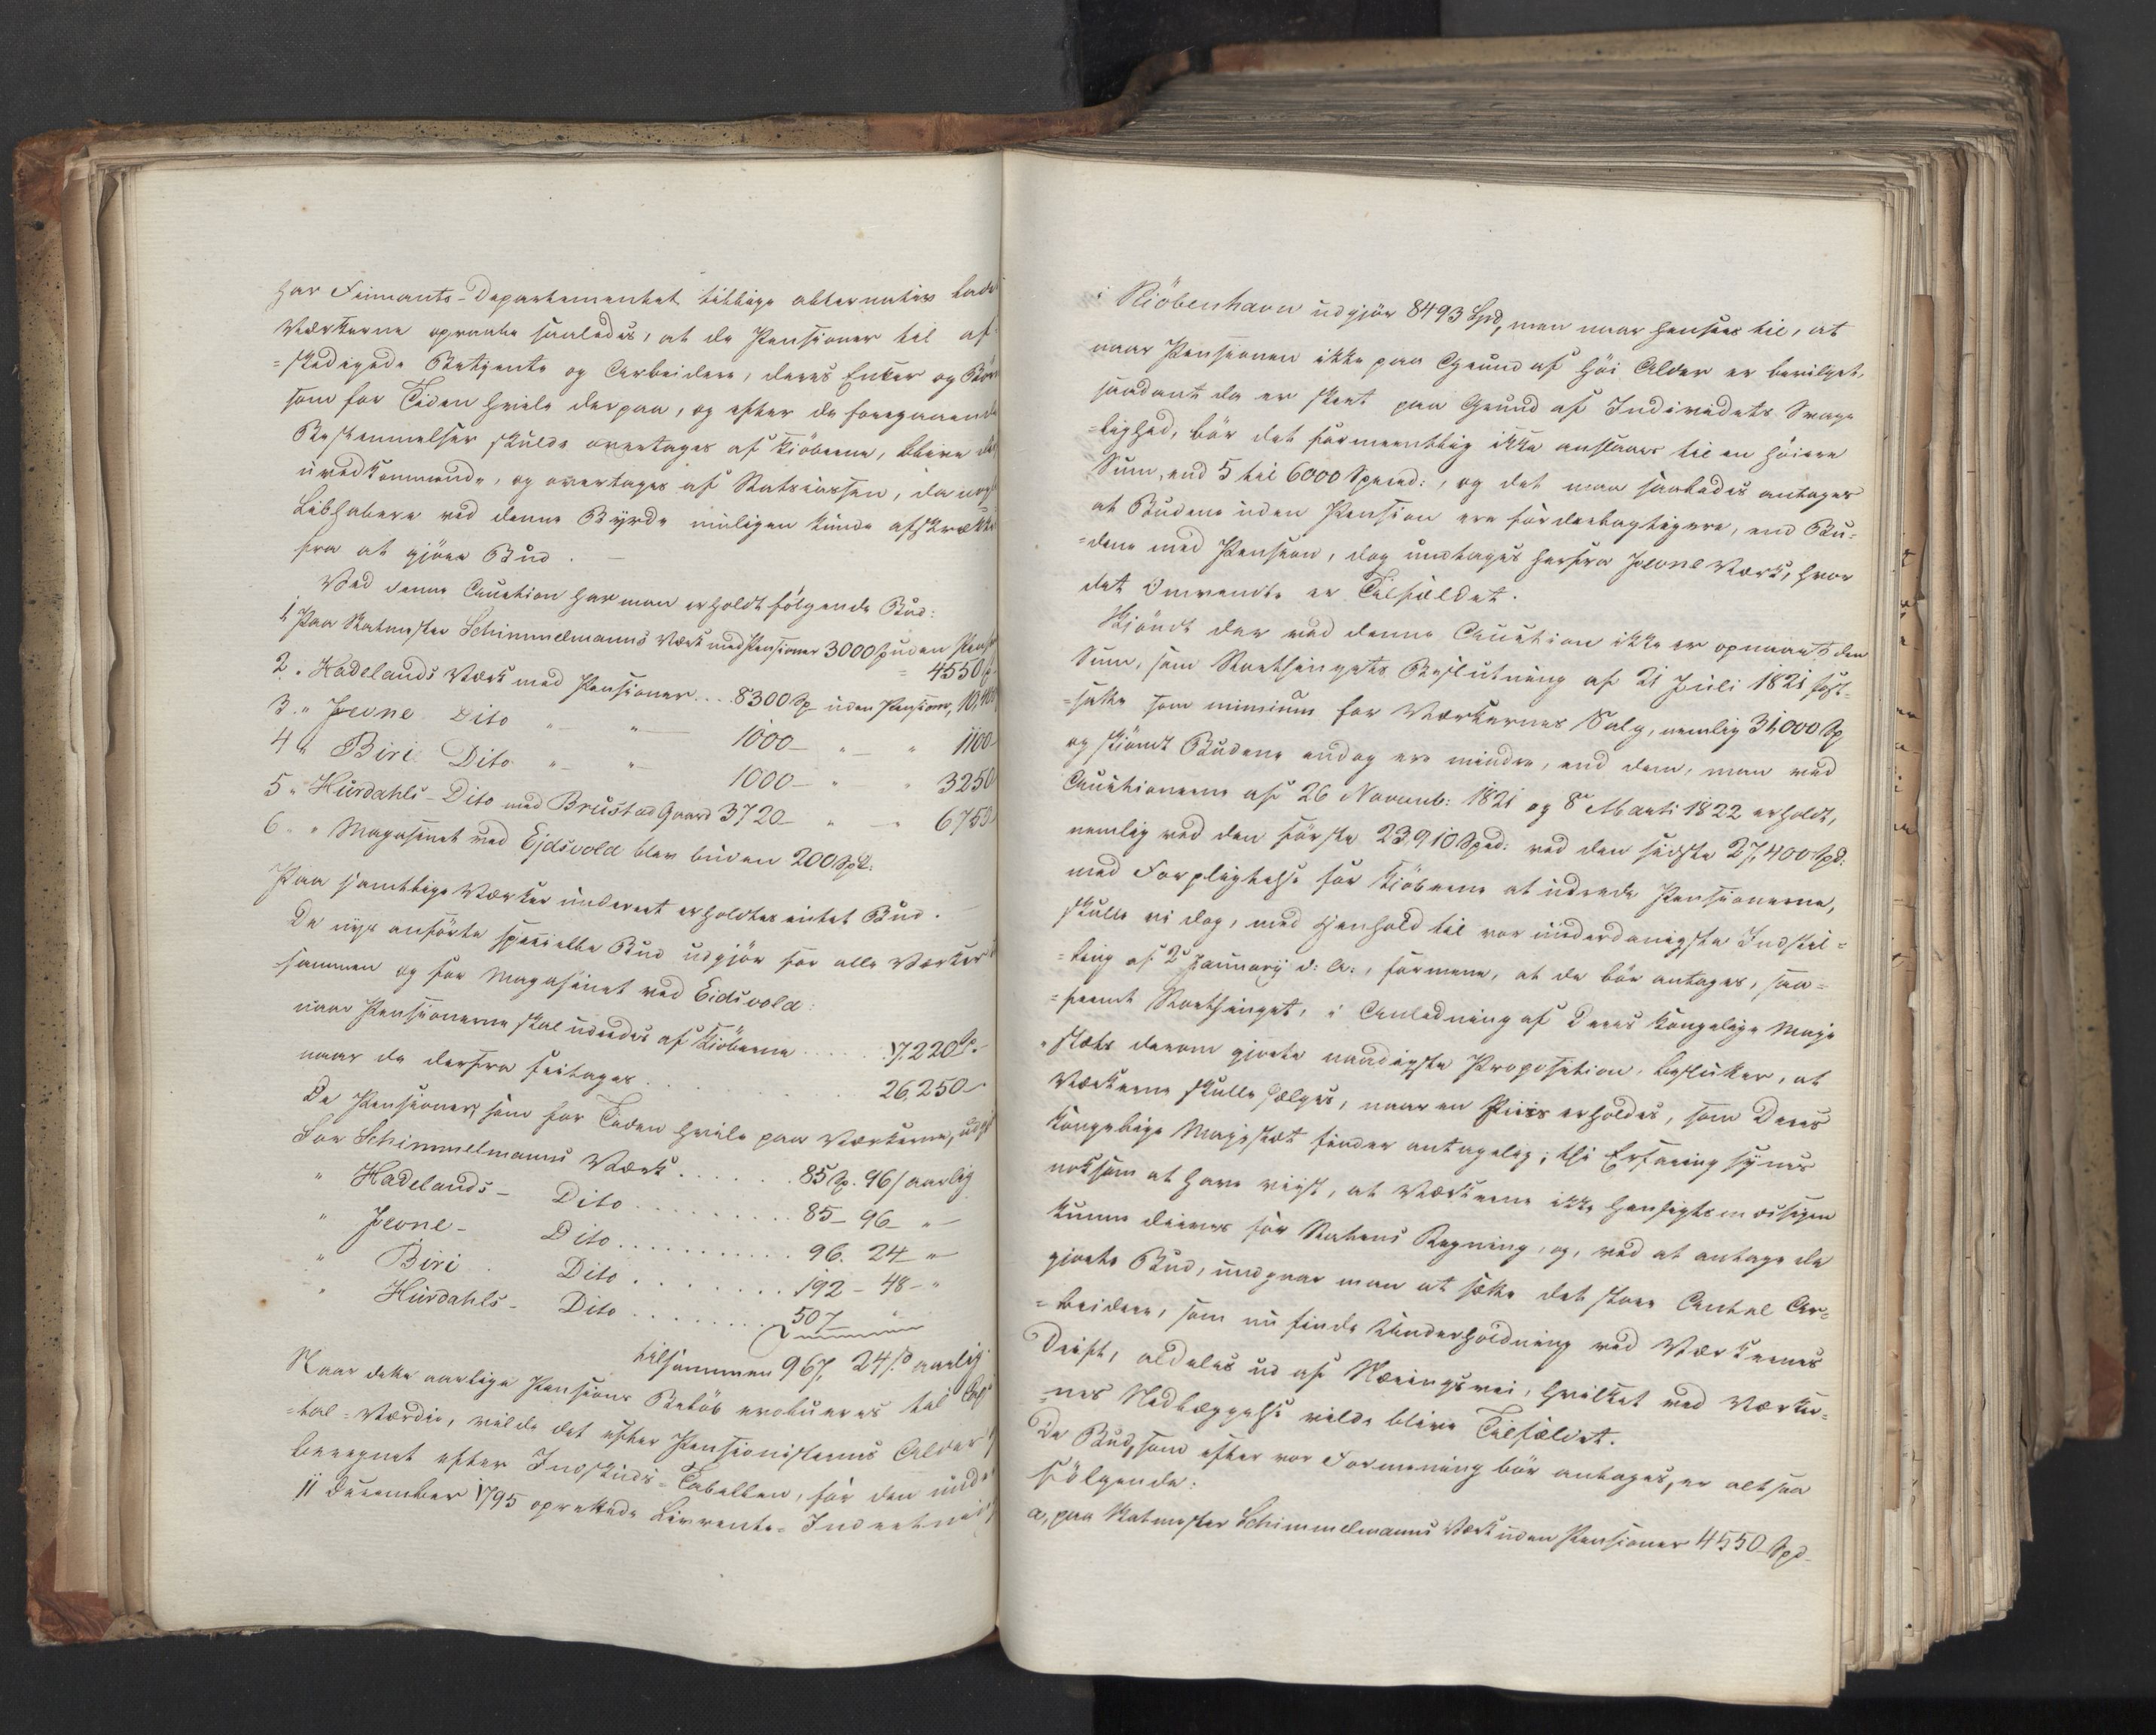 har Finants-Departementet tillige alternativ lade
Værkerne opraabe saaledes, at de Pensioner til af-
=skedigede Betjente og Arbeidere, deres Enker og Børn
som for Tiden hvile derpaa, og efter de foregaaende
Bestemmelser skulde overtages af Kiøberne, bleve
uvedkommende, og overtages af Statscassen, da
Lebhabere ved denne Byrde muligen kunde afskrækkes
fra at gjøre Bud. —
Ved denne Auction har man erholdt følgende Bud:
1, Paa Statmester Schimmelmanns Værk med Pensioner 3000 uden
= 4550
2 . Hadelands Værk med Pensioner.... 8300 Sp uden Pensioner,
3. " Jevne Dito " — " — 1000 — " — " 1100
4 " Biri Dito " — " — 1000 — " " 3250
5 " Hurdahls - Dito med Brustad Gaard 3720 — " — " 6750
6. " Magasinet ved Ejdsvold blev buden 200 Spd.
Paa samtlige Værker undereet erholdtes intet Bud. —
De nys anførte specielle Bud udgjør for alle Værker
sammen og for Magasinet ved Eidsvold:
naar Pensionerne skal udredes af Kiøberne ...... 17,220 Sp. -
naar de derfra fritages ............ 26,250 -
De Pensioner, som for Tiden hvile paa Værkerne,
For Schimmelmanns Værk ....... 85 Sp. 96 / aarlig
" Hadelands - Dito ......... 85 - 96 - " -
" Jevne - Dito ........... 96. 24 - " -
" Biri Dito ........ 192 - 48 - "
" Hurdahls - Dito ......... 507 "
tilsammen 967, 24 aarlig
Naar dette aarlige Pensions Beløb evalueres til
=tal=Værdie, vilde det efter Pensionisternes Alder
beregnet efter Indskuds=Tabellen, for den
11 December 1795 oprettede Livrente=
i Kiøbenhavn udgjør 8493 Spd, men naar hensees til, at
naar Pensionen ikke paa Grund af høi Alder er bevilget,
saadant da er skeet paa Grund af Individets Svage
=lighed, bør det formeentlig ikke anslaaes til en høiere
Sum, end 5 til 6000 Specied:, og det maa saaledes antages
at Budene uden Pension ere fordeelagtigere, end Bu=
=dene med Pension, dog undtages herfra Jevne Værk, hvor
det Omvendte er Tilfældet.
Skjøndt der ved denne Auction ikke er opnaaet den
Sum, som Storthingets Beslutning af 21 Juli 1821 fast=
=satte som minimum for Værkernes Salg, nemlig 31,000 Sp
og skiøndt Budene endog ere mindre, end dem, man ved
Auctionerne af 26 Novemb: 1821 og 8de Marti 1822 erholdt,
nemlig ved den første 23,910 Spd: ved den sidste 27,400 Spd:
med Forpligtelse for Kiøberne at udrede Pensionerne,
skulle vi dog, med Henhold til vor underdanigste Indstil=
=ling af 2 January d: A:, formene, at de bør antages, saa=
=fremt Storthinget, i Anledning af Deres Kongelige Maje
=stæts derom gjorte naadigste Proposition, beslutter, at
Værkerne skulle sælges, naar en Priis erholdes, som Deres
Kongelige Majestæt finder antagelig; thi Erfaring synes
noksom at have viist, at Værkerne ikke hensigtsmæssigen
kunne drives for Statens Regning, og, ved at antage de
gjorte Bud, undgaaer man at sætte det store Antal Ar=
=beidere, som nu finde Underholdning ved Værkernes
Drift, aldeles ud af Næringsvei, hvilket ved Værker=
=nes Nedlæggelse vilde blive Tilfældet.
De Bud, som efter vor Formening bør antages, er altsaa
følgende:
a, paa Statmester Schimmelmanns Værk uden Pensioner 4550 Spd-